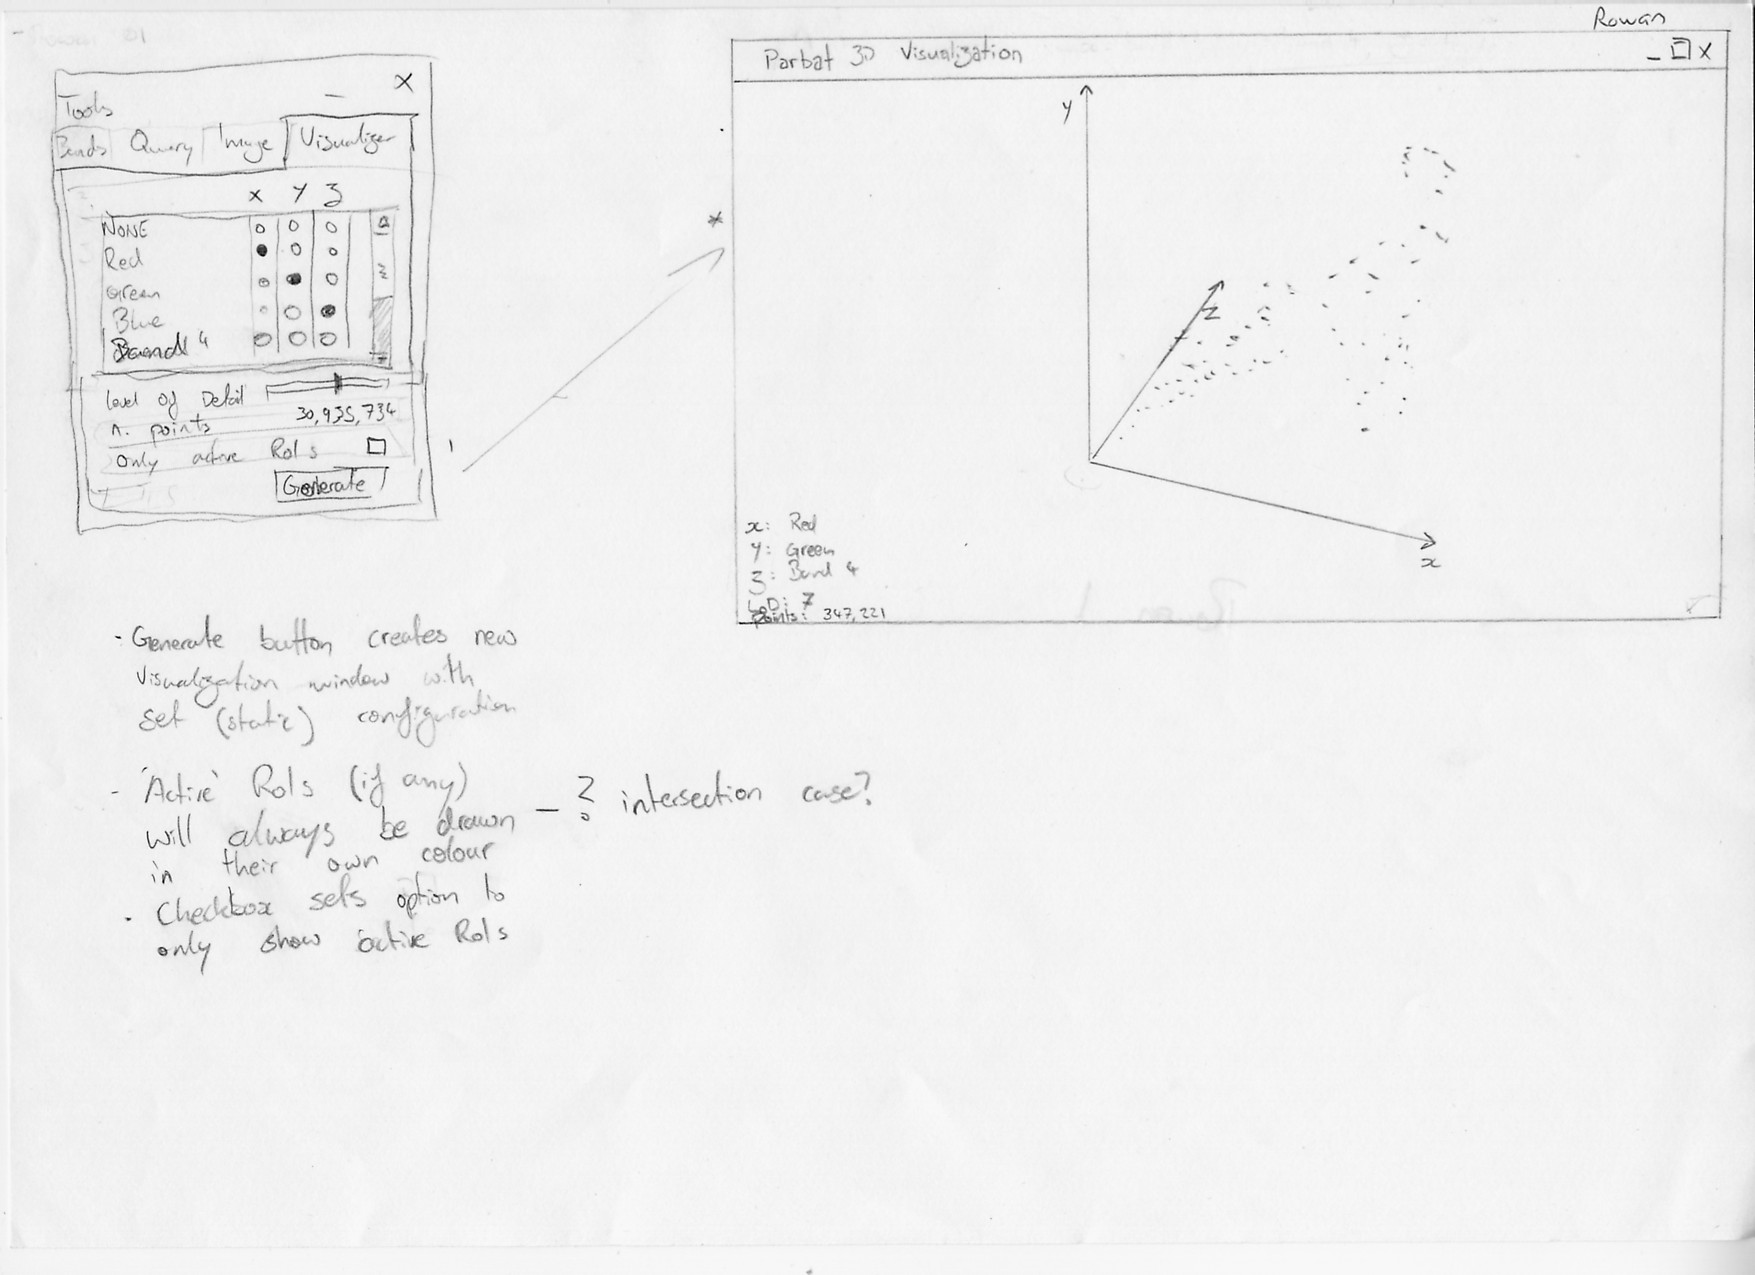 Rowan
Tools
Bands Query Image Visualizer
X Y Z
NONE
Red
Green
Blue
Band 4
Level of Detail
n. points 30,935,734
Only active RoIs
Generate
Parbat 3D Visualization
y
z
x
x: Red
y: Green
z: Band 4
LoD: 7
Points: 347,221
1
*
- Generate button creates new
visualization window with
set (static) configuration
- 'Active' RoIs (if any)
will always be drawn
in their own colour
- ? intersection case?
- Checkbox sets option to
only show active RoIs